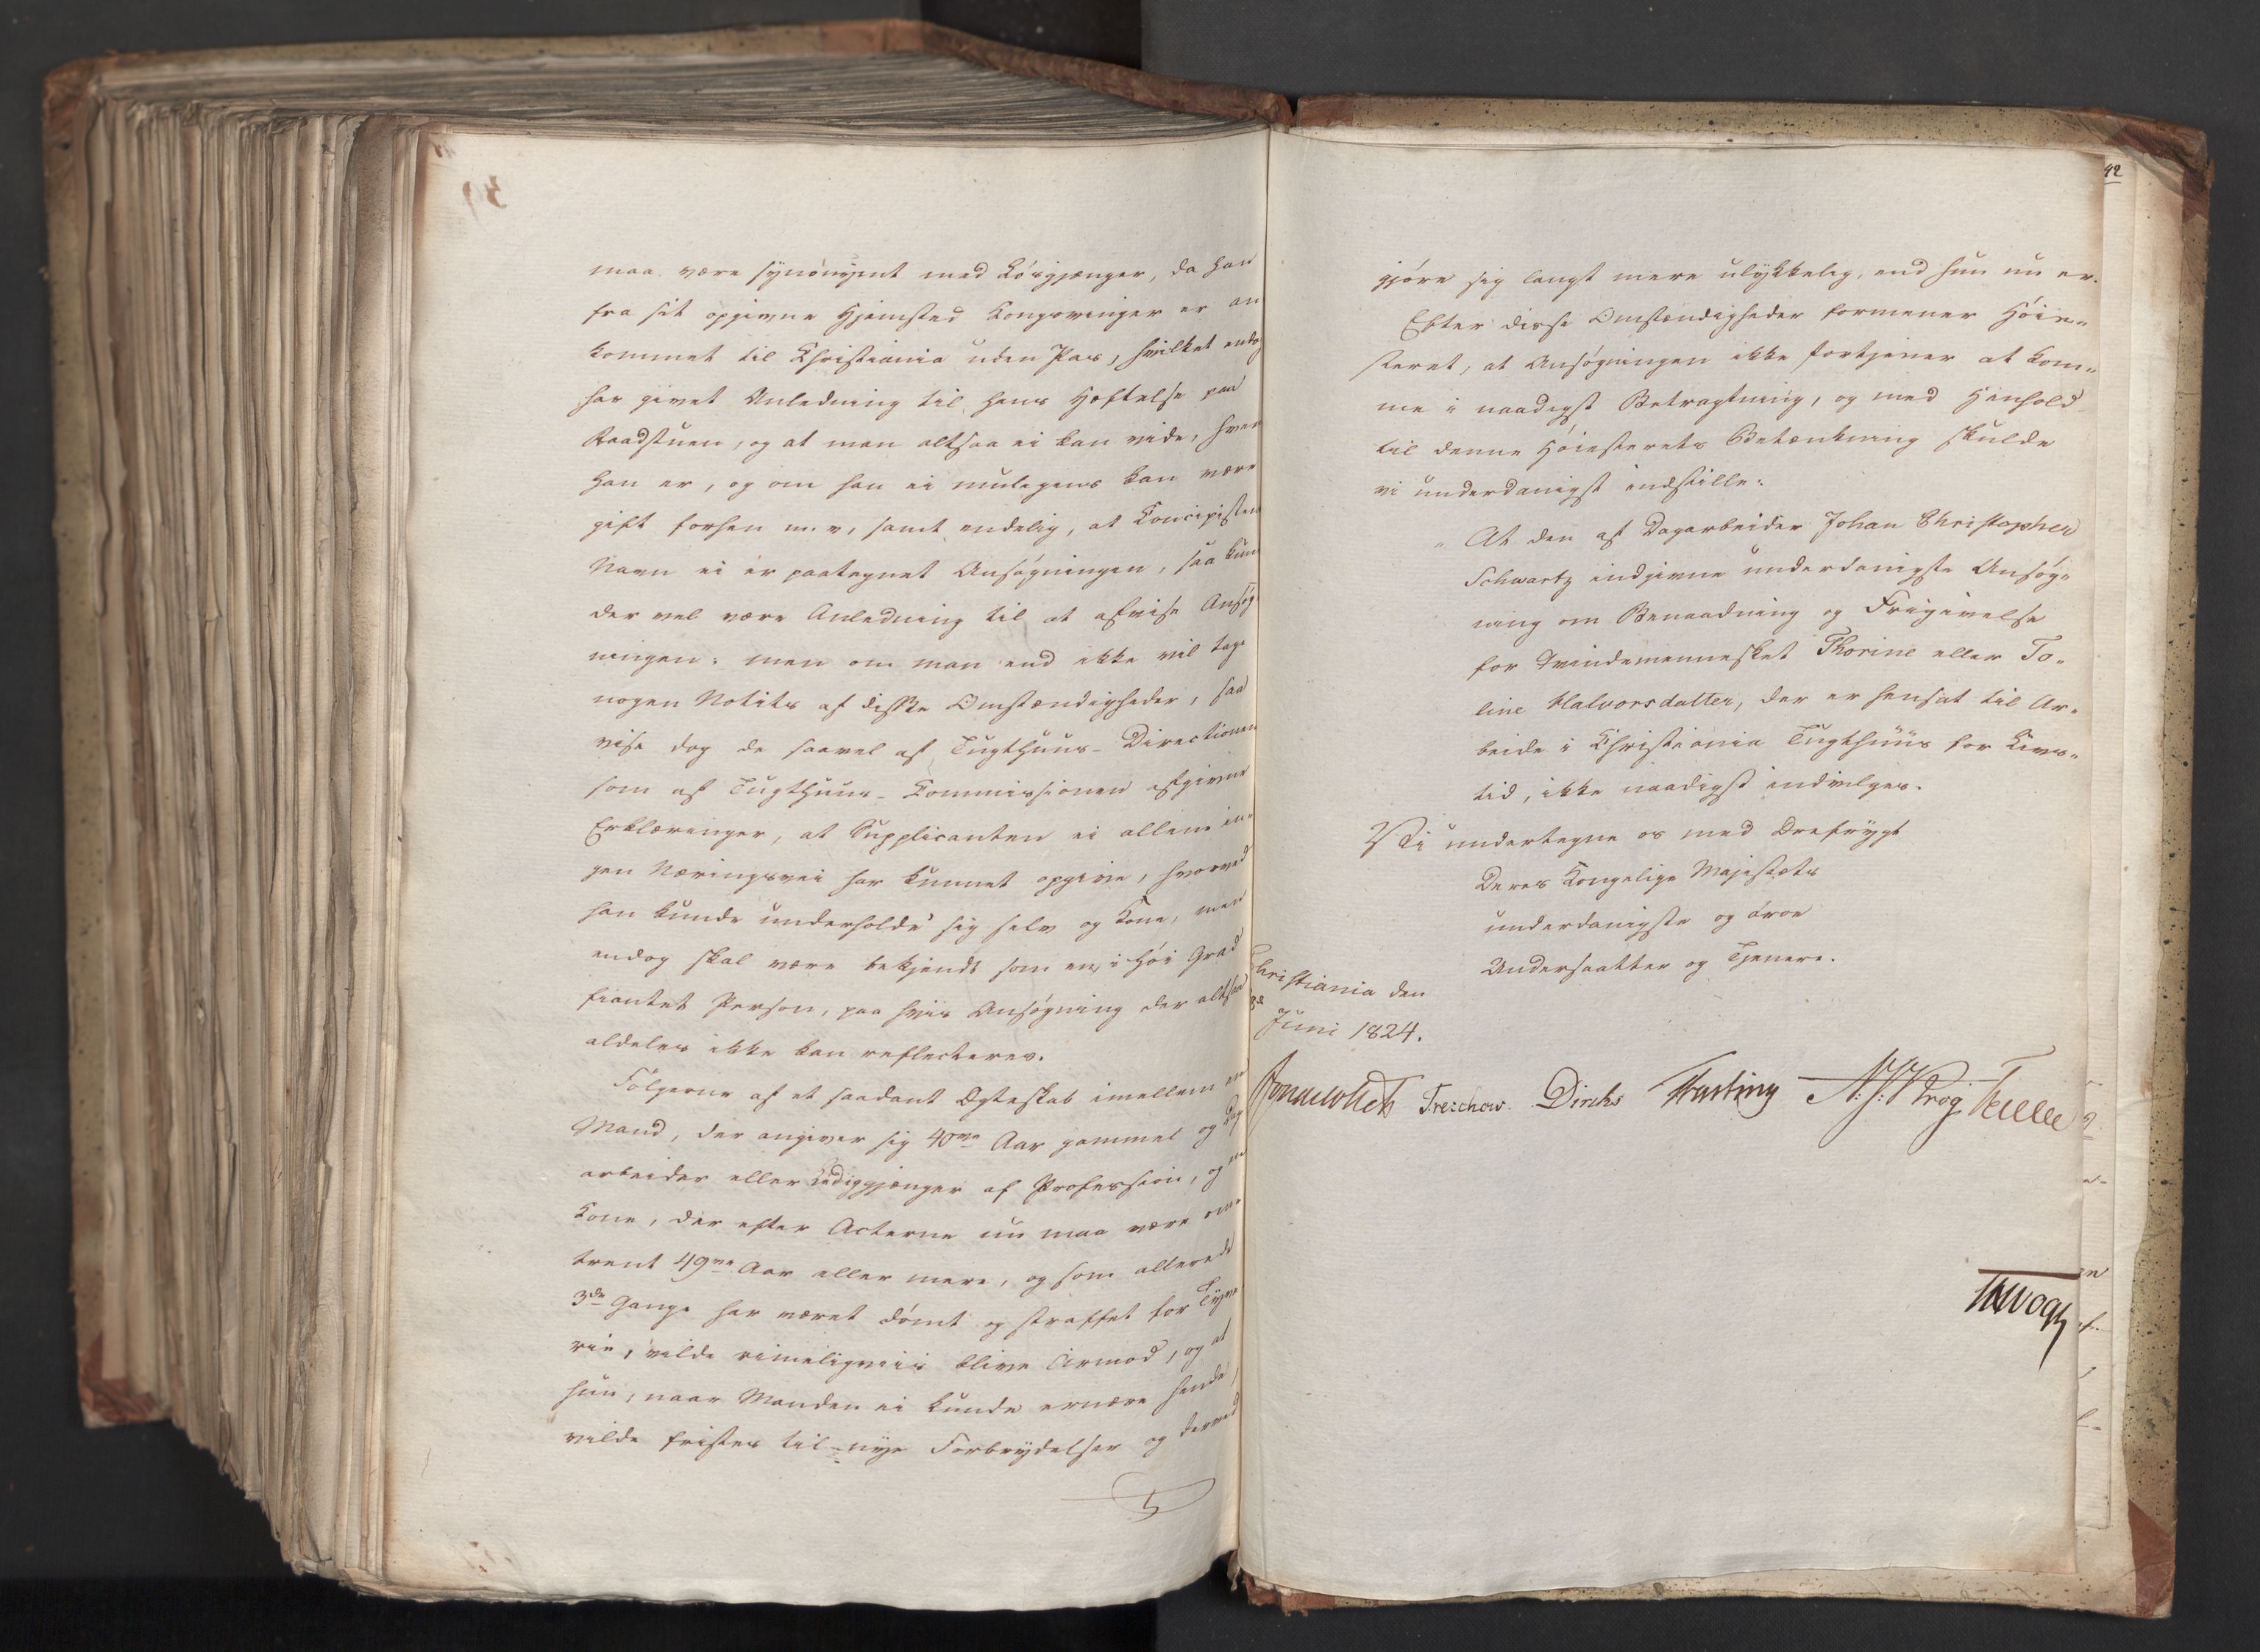 maa være synonymt med Løsgjænger, da han
fra sit opgivne Hjemsted Kongsvinger er an
kommet til Christiania uden Pas, hvilket endog
har givet Anledning til hans Hæftelse paa
Raadstuen, og at man altsaa ei kan vide, hvem
han er, og om han ei muligens kan være
gift forhen m. v., samt endelig, at Concipistens
Navn ei er paategnet Ansøgningen, saa kun
der vel være Anledning til at afvise Ansøg
ningen; men om man end ikke vil tage
nogen Notits af disse Omstændigheder, saa
vise dog de saavel af Tugthuus-Directionen
som af Tugthuus-Commissionen afgivne
Erklæringer, at Supplicanten ei allene in-
gen Næringsvei har kunnet opgive, hvorved
han kunde underholde sig selv og Kone, men
endog skal være bekjendt som en, i høi Grad
Person, paa hvis Ansøgning der altsaa
aldeles ikke kan reflecteres.
Følgerne af et saadant Ægteskab imellem en
Mand, der angiver sig 40ve Aar gammel og Dag
arbeider eller Lediggjænger af Profession, og en
Kone, der efter Acterne nu maa være om-
trent 49ve Aar eller mere, og som allerede
3de Gange har været dømt og straffet for Tyve
rie, vilde rimeligviis blive Armod, og at
hun, naar Manden ei kunde ernære hende,
vilde fristes til nye Forbrydelser og derved
42
gjøre sig langt mere ulykkelig, end hun nu er.
Efter disse Omstændigheder formener Høie-
steret, at Ansøgningen ikke fortjener at kom-
me i naadigst Betragtning, og med Henhold
til denne Høiesterets Betænkning skulde
vi underdanigst indstille:
"At den af Dagarbeider Johan Christopher
Schwartz indgivne underdanigste Ansøg-
ning om Benaadning og Frigivelse
for Qvindemennesket Thorine eller To-
line Halvorsdatter, der er hensat til Ar-
beide i Christiania Tugthuus for Livs-
tid, ikke naadigst indvilges.
Vi undertegne os med Ærefrygt
Deres Kongelige Majestæts
underdanigste og troe
Undersaatter og Tjenere.
Christiania den
8de
Juni 1824.
Treschow Diriks Fasting N. J. Krog